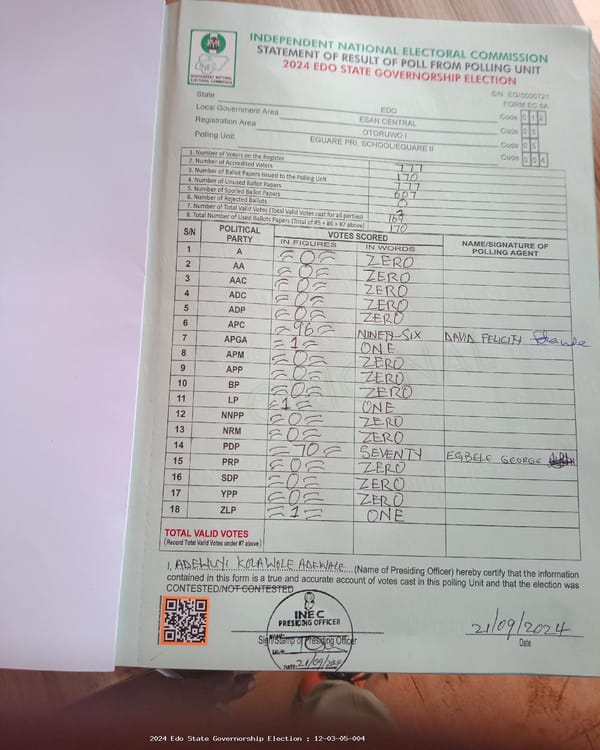 INDEPENDENT NATIONAL ELECTORAL COMMISSION
STATEMENT OF RESULT OF POLL FROM POLLING UNIT
2024 EDO STATE GOVERNORSHIP ELECTION
INEC
INDEPENDENT NATIONAL ELECTORAL COMMISSION
S/N: EG/0000721
FORM EC 8A
State EDO Code 0 1 2
Local Government Area ESAN CENTRAL Code 0 3
Registration Area OTORUWO I Code 0 5
Polling Unit EGUARE PRI. SCHOOL/EGUARE II Code 0 0 4
1. Number of Voters on the Register 777
2. Number of Accredited Voters 170
3. Number of Ballot Papers Issued to the Polling Unit 777
4. Number of Unused Ballot Papers 607
5. Number of Spoiled Ballot Papers 0
6. Number of Rejected Ballots
7. Number of Total Valid Votes (Total Valid Votes cast for all parties) 169
8. Total Number of Used Ballots Papers (Total of #5 + #6 + #7 above) 170
S/N POLITICAL PARTY VOTES SCORED NAME/SIGNATURE OF POLLING AGENT
IN FIGURES IN WORDS
1 A 0 ZERO
2 AA 0 ZERO
3 AAC 0 ZERO
4 ADC 0 ZERO
5 ADP 0 ZERO
6 APC 96 NINETY-SIX DAVID FELICITY
7 APGA 1 ONE
8 APM 0 ZERO
9 APP 0 ZERO
10 BP 0 ZERO
11 LP 1 ONE
12 NNPP 0 ZERO
13 NRM 0 ZERO
14 PDP 70 SEVENTY EGBELE GEORGE
15 PRP 0 ZERO
16 SDP 0 ZERO
17 YPP 0 ZERO
18 ZLP 1 ONE
TOTAL VALID VOTES
(Record Total Valid Votes under #7 above)
I, ADEWUYI KOLAWOLE ADEWALE (Name of Presiding Officer) hereby certify that the information
contained in this form is a true and accurate account of votes cast in this polling Unit and that the election was
CONTESTED/NOT CONTESTED
INEC
PRESIDING OFFICER
Sign/Stamp of Presiding Officer
DATE: 21/09/2024
21/09/2024
Date
2024 Edo State Governorship Election : 12-03-05-004